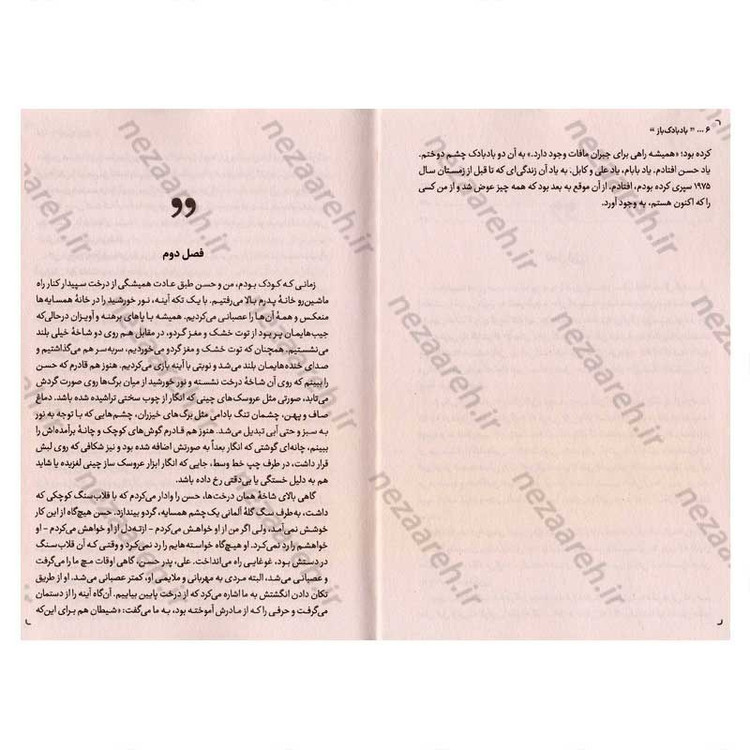 ۶ ... بادبادک‌باز
کرده بود؛ «همیشه راهی برای جبران مافات وجود دارد.» به آن دو بادبادک چشم دوختم.
یاد حسن افتادم. یاد بابام. یاد علی و کابل: به یاد آن زندگی‌ای که تا قبل از زمستان سال
۱۹۷۵ سپری کرده بودم، افتادم. از آن موقع به بعد بود که همه چیز عوض شد و از من کسی
را که اکنون هستم، به وجود آورد.
فصل دوم
زمانی که کودک بودم، من و حسن طبق عادت همیشگی از درخت سپیدار کنار راه
ماشین‌رو خانهٔ پدرم بالا می‌رفتیم. با یک تکه آینه، نور خورشید را در خانهٔ همسایه‌ها
منعکس و همهٔ آن‌ها را عصبانی می‌کردیم. همیشه با پاهای برهنه و آویزان درحالی‌که
جیب‌هایمان پر بود از توت خشک و مغز گردو، در مقابل هم روی دو شاخهٔ خیلی بلند
می‌نشستیم. همچنان که توت خشک و مغز گردو می‌خوردیم، سربه‌سر هم می‌گذاشتیم و
صدای خنده‌هایمان بلند می‌شد و نوبتی با آینه بازی می‌کردیم. هنوز هم قادرم که حسن
را ببینم که روی آن شاخهٔ درخت نشسته و نور خورشید از میان برگ‌ها روی صورت گردش
می‌تابد، صورتی مثل عروسک‌های چینی که انگار از چوب سختی تراشیده شده باشد. دماغ
صاف و پهن، چشمان تنگ بادامی مثل برگ‌های خیزران، چشم‌هایی که با توجه به نور
به سبز و حتی آبی تبدیل می‌شد. هنوز هم قادرم گوش‌های کوچک و چانهٔ برآمده‌اش را
ببینم، چانه‌ای گوشتی که انگار بعداً به صورتش اضافه شده بود و نیز شکافی که روی لبش
قرار داشت، در طرف چپ خط وسط، جایی که انگار ابزار عروسک ساز چینی لغزیده یا شاید
هم به دلیل خستگی یا بی‌دقتی رخ داده باشد.
گاهی بالای شاخهٔ همان درخت‌ها، حسن را وادار می‌کردم که با قلاب‌سنگ کوچکی که
داشت، به‌طرف سگ گلهٔ آلمانی یک چشم همسایه، گردو بیندازد. حسن هیچ‌گاه از این کار
خوشش نمی‌آمد، ولی اگر من از او خواهش می‌کردم - ازته‌دل از او خواهش می‌کردم - او
خواهشم را رد نمی‌کرد. او هیچ‌گاه خواسته‌هایم را رد نمی‌کرد و وقتی که آن قلاب‌سنگ
در دستش بود، غوغایی راه می‌انداخت. علی، پدر حسن، گاهی اوقات مچ ما را می‌گرفت
و عصبانی می‌شد، البته مردی به مهربانی و ملایمی او، کمتر عصبانی می‌شد. او از طریق
تکان دادن انگشتش به ما اشاره می‌کرد که از درخت پایین بیاییم. آن‌گاه آینه را از دستمان
می‌گرفت و حرفی را که از مادرش آموخته بود، به ما می‌گفت: «شیطان هم برای این‌که
nezaareh.ir
nezaareh.ir
nezaareh.ir
nezaareh.ir
nezaareh.ir
nezaareh.ir
nezaareh.ir
nezaareh.ir
nezaareh.ir